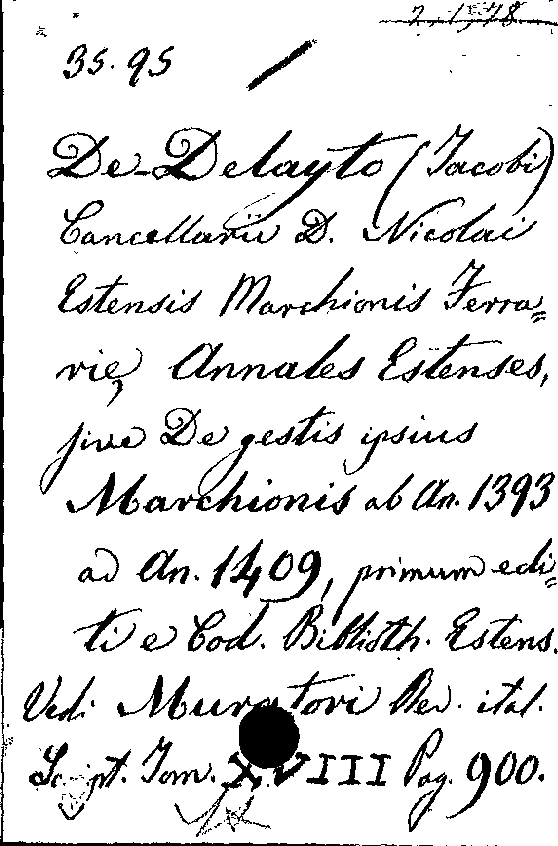 35.95
De-Delayto (Jacobi)
Cancellarii D. Nicolai
Estensis Marchionis Ferra=
rię, Annales Estenses,
sive De gestis ipsius
Marchionis ab An. 1393
ad An. 1409, primum edi=
ti e Cod. Biblioth. Estens.
Vedi Muratori Rer. ital.
Script. Tom. XVIII Pag. 900.